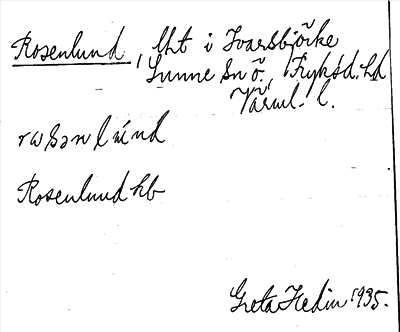 Rosenlund, lht i Ivarsbjörke
Sunne sn ö., Fryksd. hd
Värml. l.
rwsənlúnd
Rosenlund hb
Greta Hedin 1935.